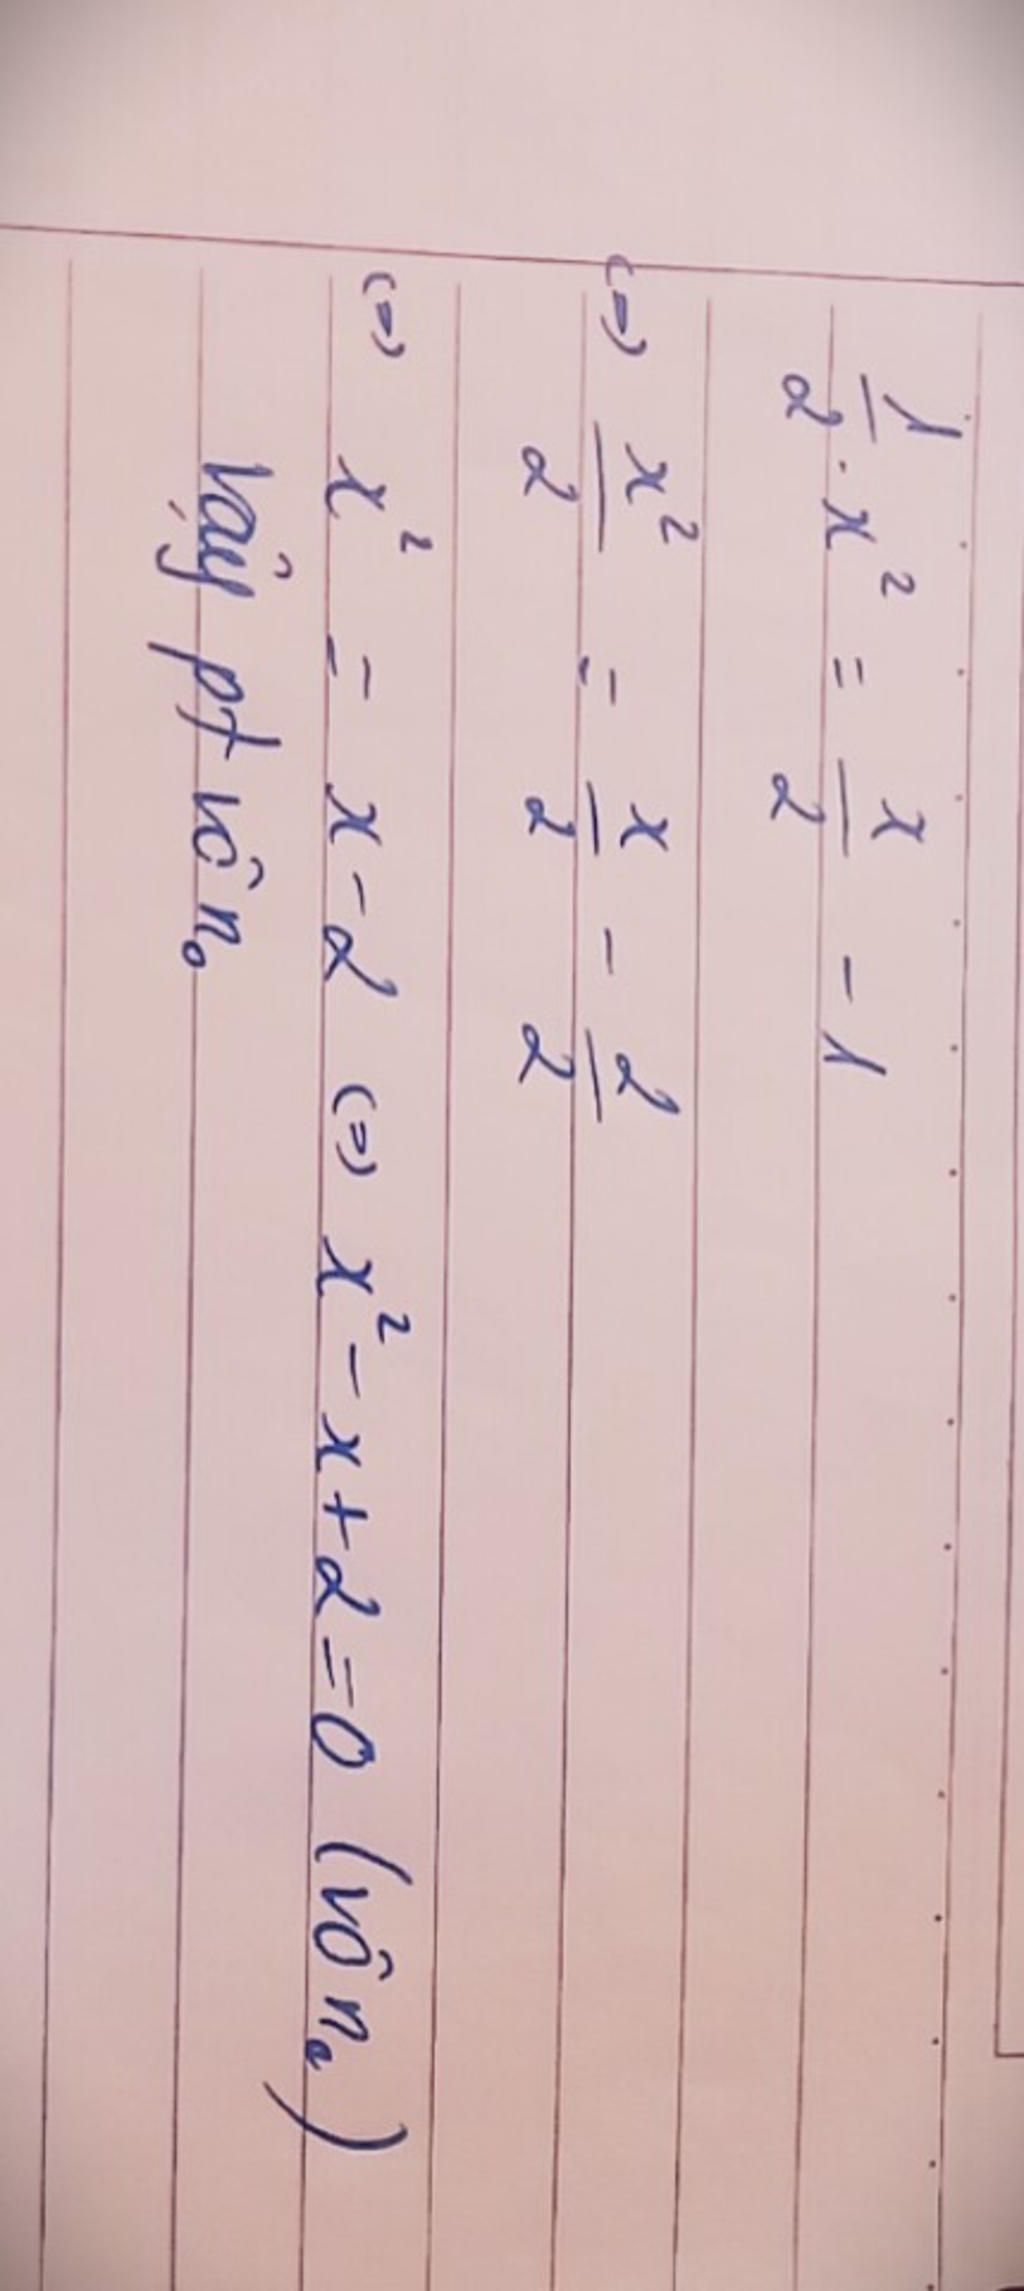 1/2 . x² = x/2 - 1
<=> x²/2 = x/2 - 2/2
<=> x² = x - 2 <=> x² - x + 2 = 0 (vô n₀)
Vậy pt vô n₀